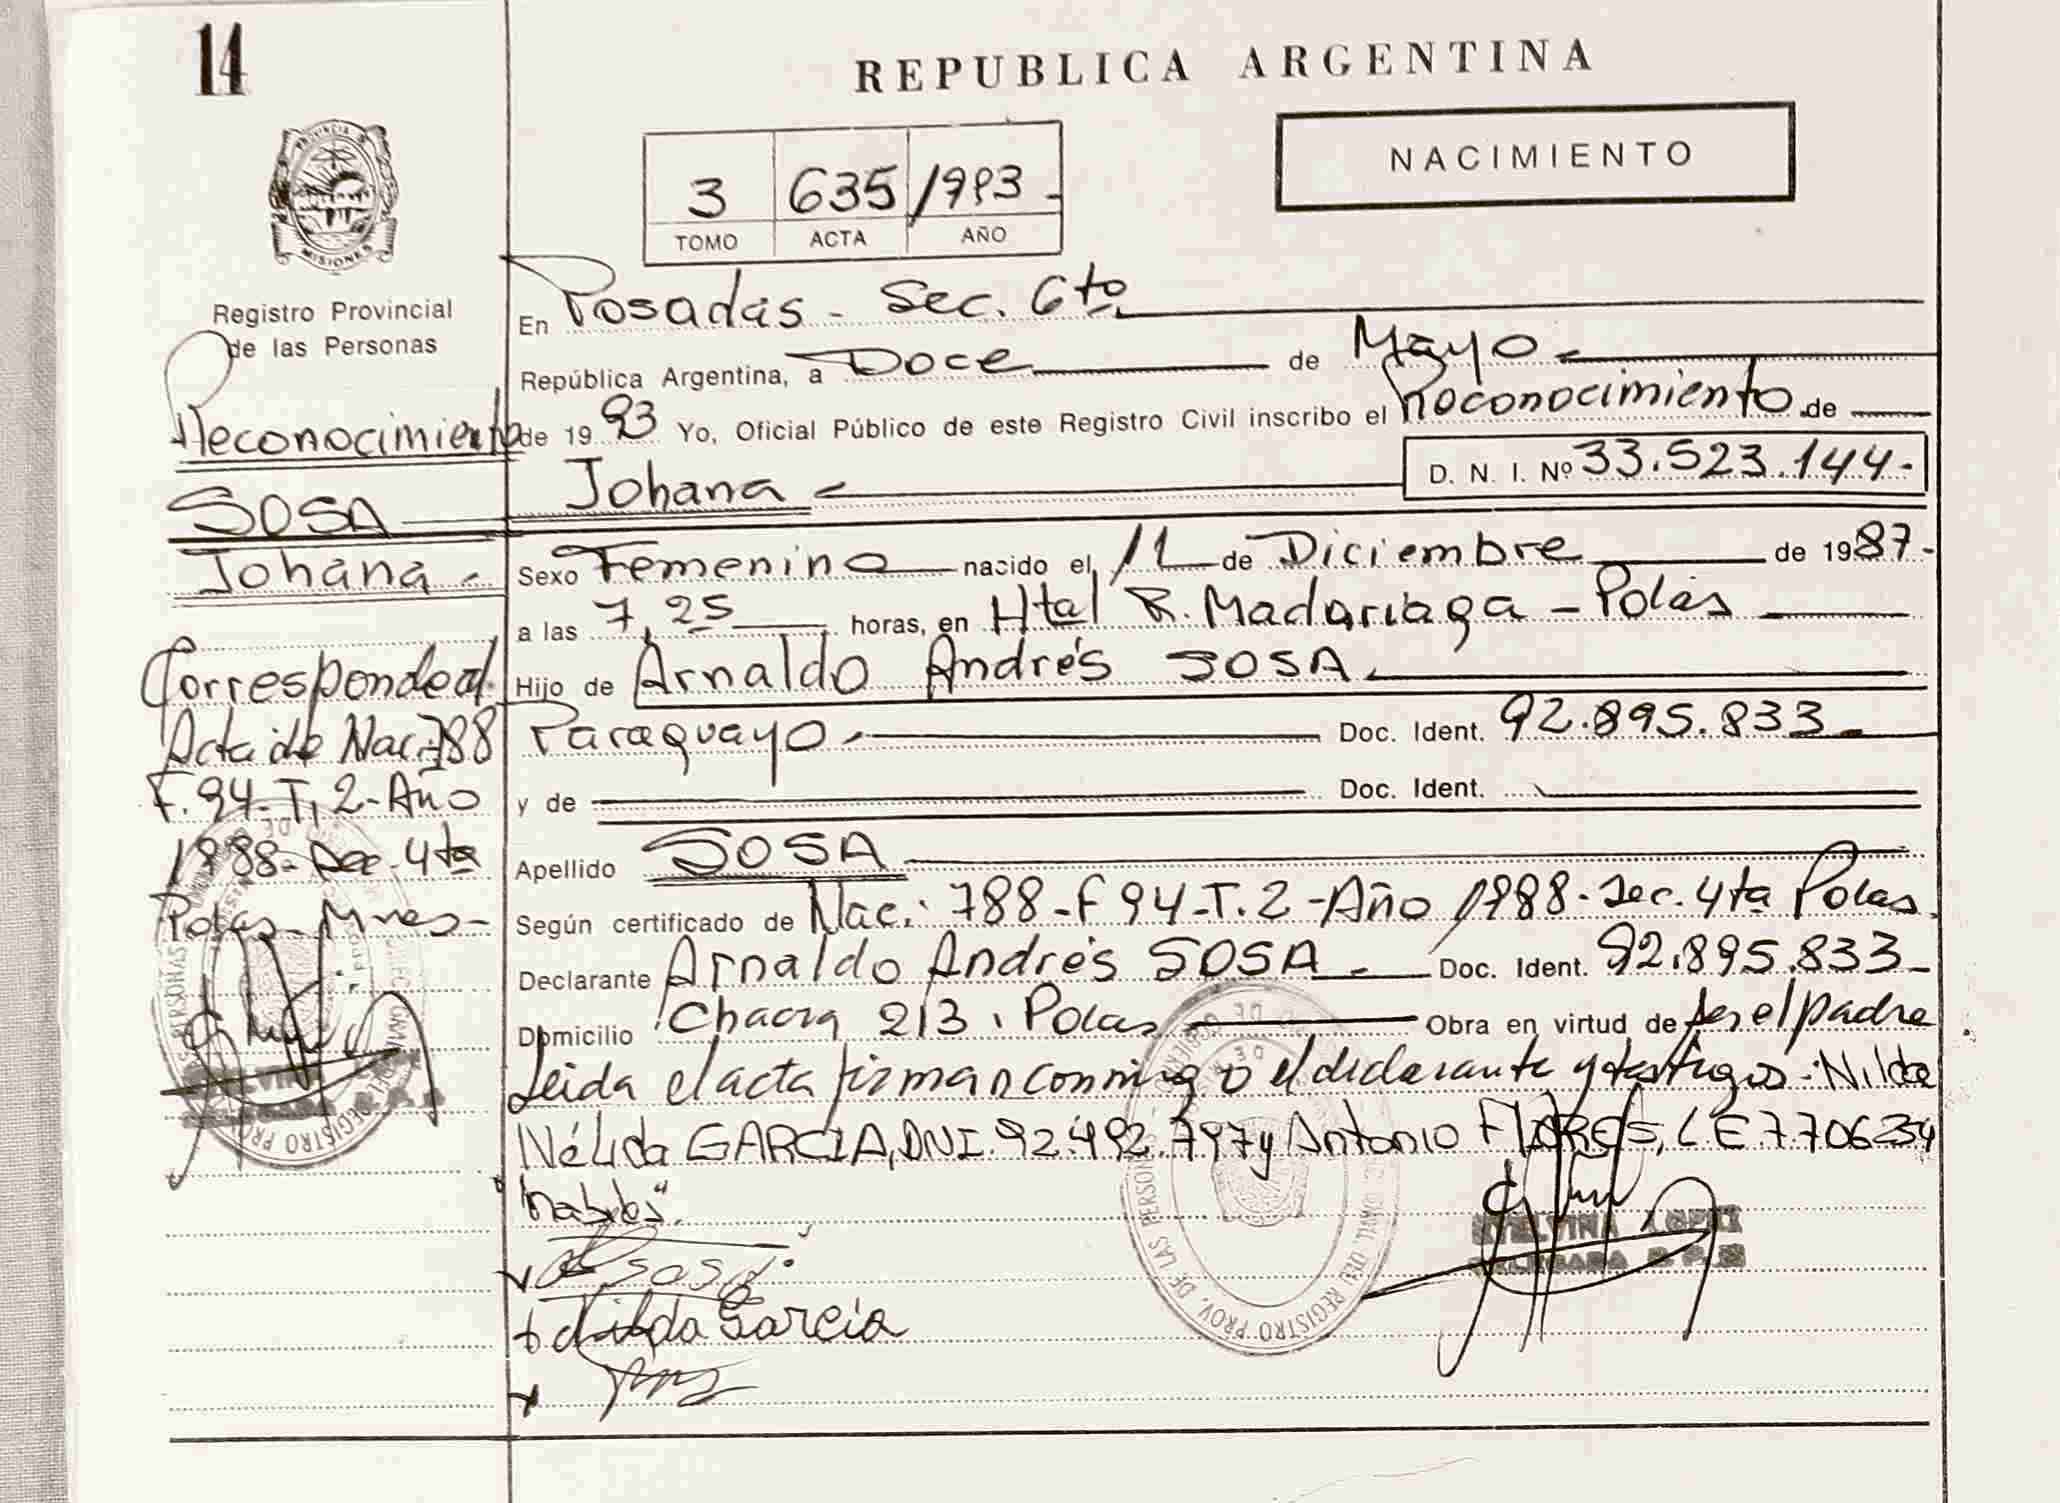 14
REPUBLICA ARGENTINA
NACIMIENTO
3 635 /1993
TOMO ACTA AÑO
PROVINCIA DE
MISIONES
Registro Provincial
de las Personas
Reconocimiento
SOSA
Johana
Corresponde al
Acta de Nac. 788
F. 94-T, 2-Año
1988- Sec-4ta
Pdas- Mnes-
En Posadas - Sec. 6to
República Argentina, a Doce de Mayo
de 1993 Yo, Oficial Público de este Registro Civil inscribo el Reconocimiento de
Johana D. N. I. Nº 33.523.144-
Sexo Femenino nacido el 11 de Diciembre de 1987-
a las 7,25 horas, en Htal R. Madariaga - Pdas
Hijo de Arnaldo Andrés SOSA
Paraguayo Doc. Ident. 92.895.833
y de Doc. Ident.
Apellido SOSA
Según certificado de Nac.: 788-F 94-T.2-Año 1988-Sec.4ta Pdas.
Declarante Arnaldo Andrés SOSA Doc. Ident. 92.895.833
Domicilio Chacra 213. Pdas Obra en virtud de ser el padre
Leida el acta firman conmigo el declarante y testigos-Nilda
Nélida GARCIA, DNI. 92.492.797 y Antonio FLORES, LE 7706234
"habiles".
Sosa
Nilda García
STELVINA LOPEZ
DELEGADA
REGISTRO PROV. DE LAS PERSONAS